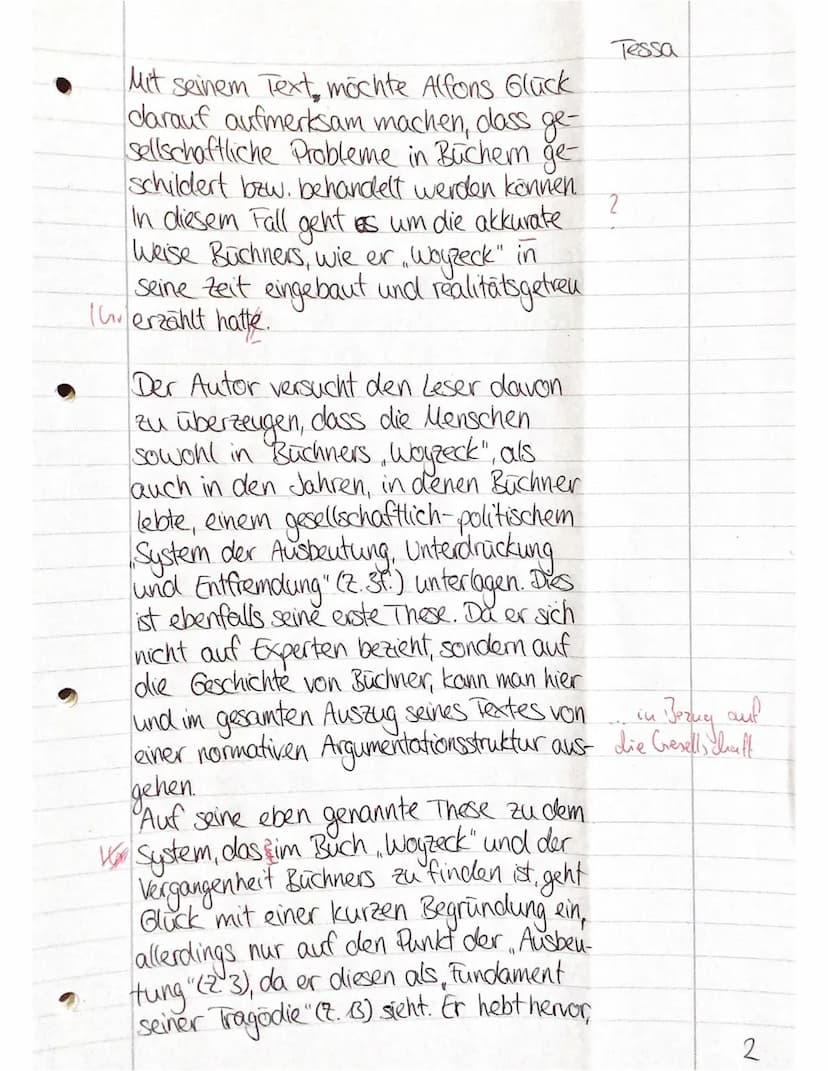 Tessa
Mit seinem Text, möchte Alfons Glück
darauf aufmerksam machen, dass ge-
sellschaftliche Probleme in Büchern ge-
schildert bzw. behandelt werden können.
In diesem Fall geht es um die akkurate
?
Weise Büchners, wie er „Woyzeck" in
seine Zeit eingebaut und realitätsgetreu
erzählt hatte.
Der Autor versucht den Leser davon
zu überzeugen, dass die Menschen
sowohl in Büchners „Woyzeck", als
auch in den Jahren, in denen Büchner
lebte, einem gesellschaftlich-politischem
„System der Ausbeutung, Unterdrückung
und Entfremdung" (Z. 3f.) unterlagen. Dies
ist ebenfalls seine erste These. Da er sich
nicht auf Experten bezieht, sondern auf
die Geschichte von Büchner, kann man hier
und im gesamten Auszug seines Textes von
... in Bezug auf
einer normativen Argumentationsstruktur aus-
die Gesellschaft
gehen.
Auf seine eben genannte These zu dem
System, das im Buch „Woyzeck" und der
Vergangenheit Büchners zu finden ist, geht
Glück mit einer kurzen Begründung ein,
allerdings nur auf den Punkt der „Ausbeu-
tung" (Z. 3), da er diesen als „Fundament
seiner Tragödie" (Z. 13) sieht. Er hebt hervor,
2